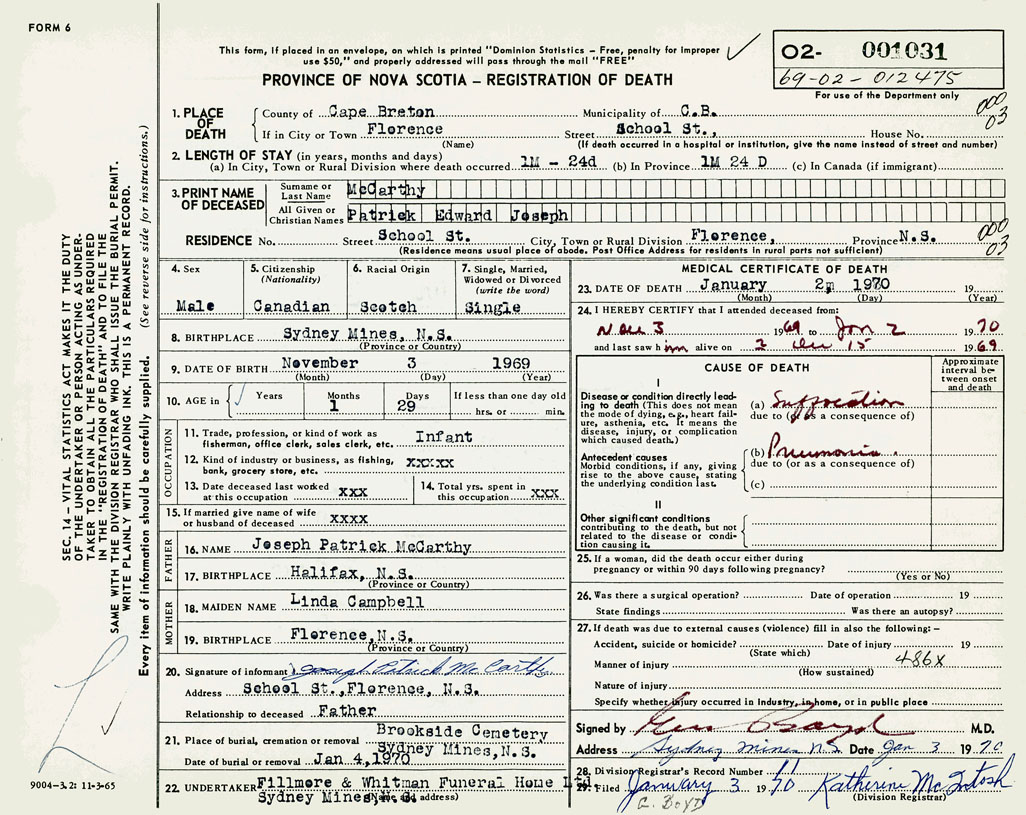 FORM 6
This form, if placed in an envelope, on which is printed "Dominion Statistics – Free, penalty for improper
use $50," and properly addressed will pass through the mail "FREE"
PROVINCE OF NOVA SCOTIA – REGISTRATION OF DEATH
O2- 001031
69-02-012475
For use of the Department only
1. PLACE OF DEATH
County of Cape Breton Municipality of C.B.
000
03
If in City or Town Florence Street School St., House No.
(Name) (If death occurred in a hospital or institution, give the name instead of street and number)
2. LENGTH OF STAY (in years, months and days)
(a) In City, Town or Rural Division where death occurred 1M - 24d (b) In Province 1M 24 D (c) In Canada (if immigrant)
3. PRINT NAME OF DECEASED
Surname or Last Name McCarthy
All Given or Christian Names Patrick Edward Joseph
RESIDENCE No. Street School St. City, Town or Rural Division Florence, Province N.S.
000
03
(Residence means usual place of abode. Post Office Address for residents in rural parts not sufficient)
4. Sex
Male
5. Citizenship
(Nationality)
Canadian
6. Racial Origin
Scotch
7. Single, Married,
Widowed or Divorced
(write the word)
Single
8. BIRTHPLACE Sydney Mines, N.S.
(Province or Country)
9. DATE OF BIRTH November 3 1969
(Month) (Day) (Year)
10. AGE in Years Months Days If less than one day old
1 29 hrs. or min.
OCCUPATION
11. Trade, profession, or kind of work as
fisherman, office clerk, sales clerk, etc. Infant
12. Kind of industry or business, as fishing,
bank, grocery store, etc. XXXXX
13. Date deceased last worked
at this occupation XXX
14. Total yrs. spent in
this occupation XXX
15. If married give name of wife
or husband of deceased XXXX
FATHER
16. NAME Joseph Patrick McCarthy
17. BIRTHPLACE Halifax, N.S.
(Province or Country)
MOTHER
18. MAIDEN NAME Linda Campbell
19. BIRTHPLACE Florence,N.S.
(Province or Country)
20. Signature of informant Joseph Patrick McCarthy
Address School St.,Florence, N.S.
Relationship to deceased Father
21. Place of burial, cremation or removal Brookside Cemetery
Sydney Mines,N.S.
Date of burial or removal Jan 4,1970
22. UNDERTAKER Fillmore & Whitman Funeral Home Ltd.
Sydney Mines N.S.
(Name and address)
MEDICAL CERTIFICATE OF DEATH
23. DATE OF DEATH January 2 1970 19
(Month) (Day) (Year)
24. I HEREBY CERTIFY that I attended deceased from:
3 1969 to Jan 2 1970
and last saw him alive on 15 1969
CAUSE OF DEATH
Approximate
interval be-
tween onset
and death
I
Disease or condition directly lead-
ing to death (This does not mean
the mode of dying, e.g., heart fail-
ure, asthenia, etc. It means the
disease, injury, or complication
which caused death.)
(a) Suffocation
due to (or as a consequence of)
Antecedent causes
Morbid conditions, if any, giving
rise to the above cause, stating
the underlying condition last.
(b) Pneumonia.
due to (or as a consequence of)
(c)
II
Other significant conditions
contributing to the death, but not
related to the disease or condi-
tion causing it.
25. If a woman, did the death occur either during
pregnancy or within 90 days following pregnancy?
(Yes or No)
26. Was there a surgical operation? Date of operation 19
State findings Was there an autopsy?
27. If death was due to external causes (violence) fill in also the following: –
Accident, suicide or homicide? Date of injury 19
(State which)
486X
Manner of injury
(How sustained)
Nature of injury
Specify whether injury occurred in industry, in home, or in public place
Signed by Boyd M.D.
Address Sydney Mines N.S. Date Jan 3 1970
28. Division Registrar's Record Number
29. Filed January 3 1970 Katherine McIntosh
(Division Registrar)
G. BOYD
SEC. 14 – VITAL STATISTICS ACT MAKES IT THE DUTY
OF THE UNDERTAKER OR PERSON ACTING AS UNDER-
TAKER TO OBTAIN ALL THE PARTICULARS REQUIRED
IN THE "REGISTRATION OF DEATH" AND TO FILE THE
SAME WITH THE DIVISION REGISTRAR WHO SHALL ISSUE THE BURIAL PERMIT.
WRITE PLAINLY WITH UNFADING INK. THIS IS A PERMANENT RECORD.
Every item of information should be carefully supplied. (See reverse side for instructions.)
9004–3.2: 11-3-65